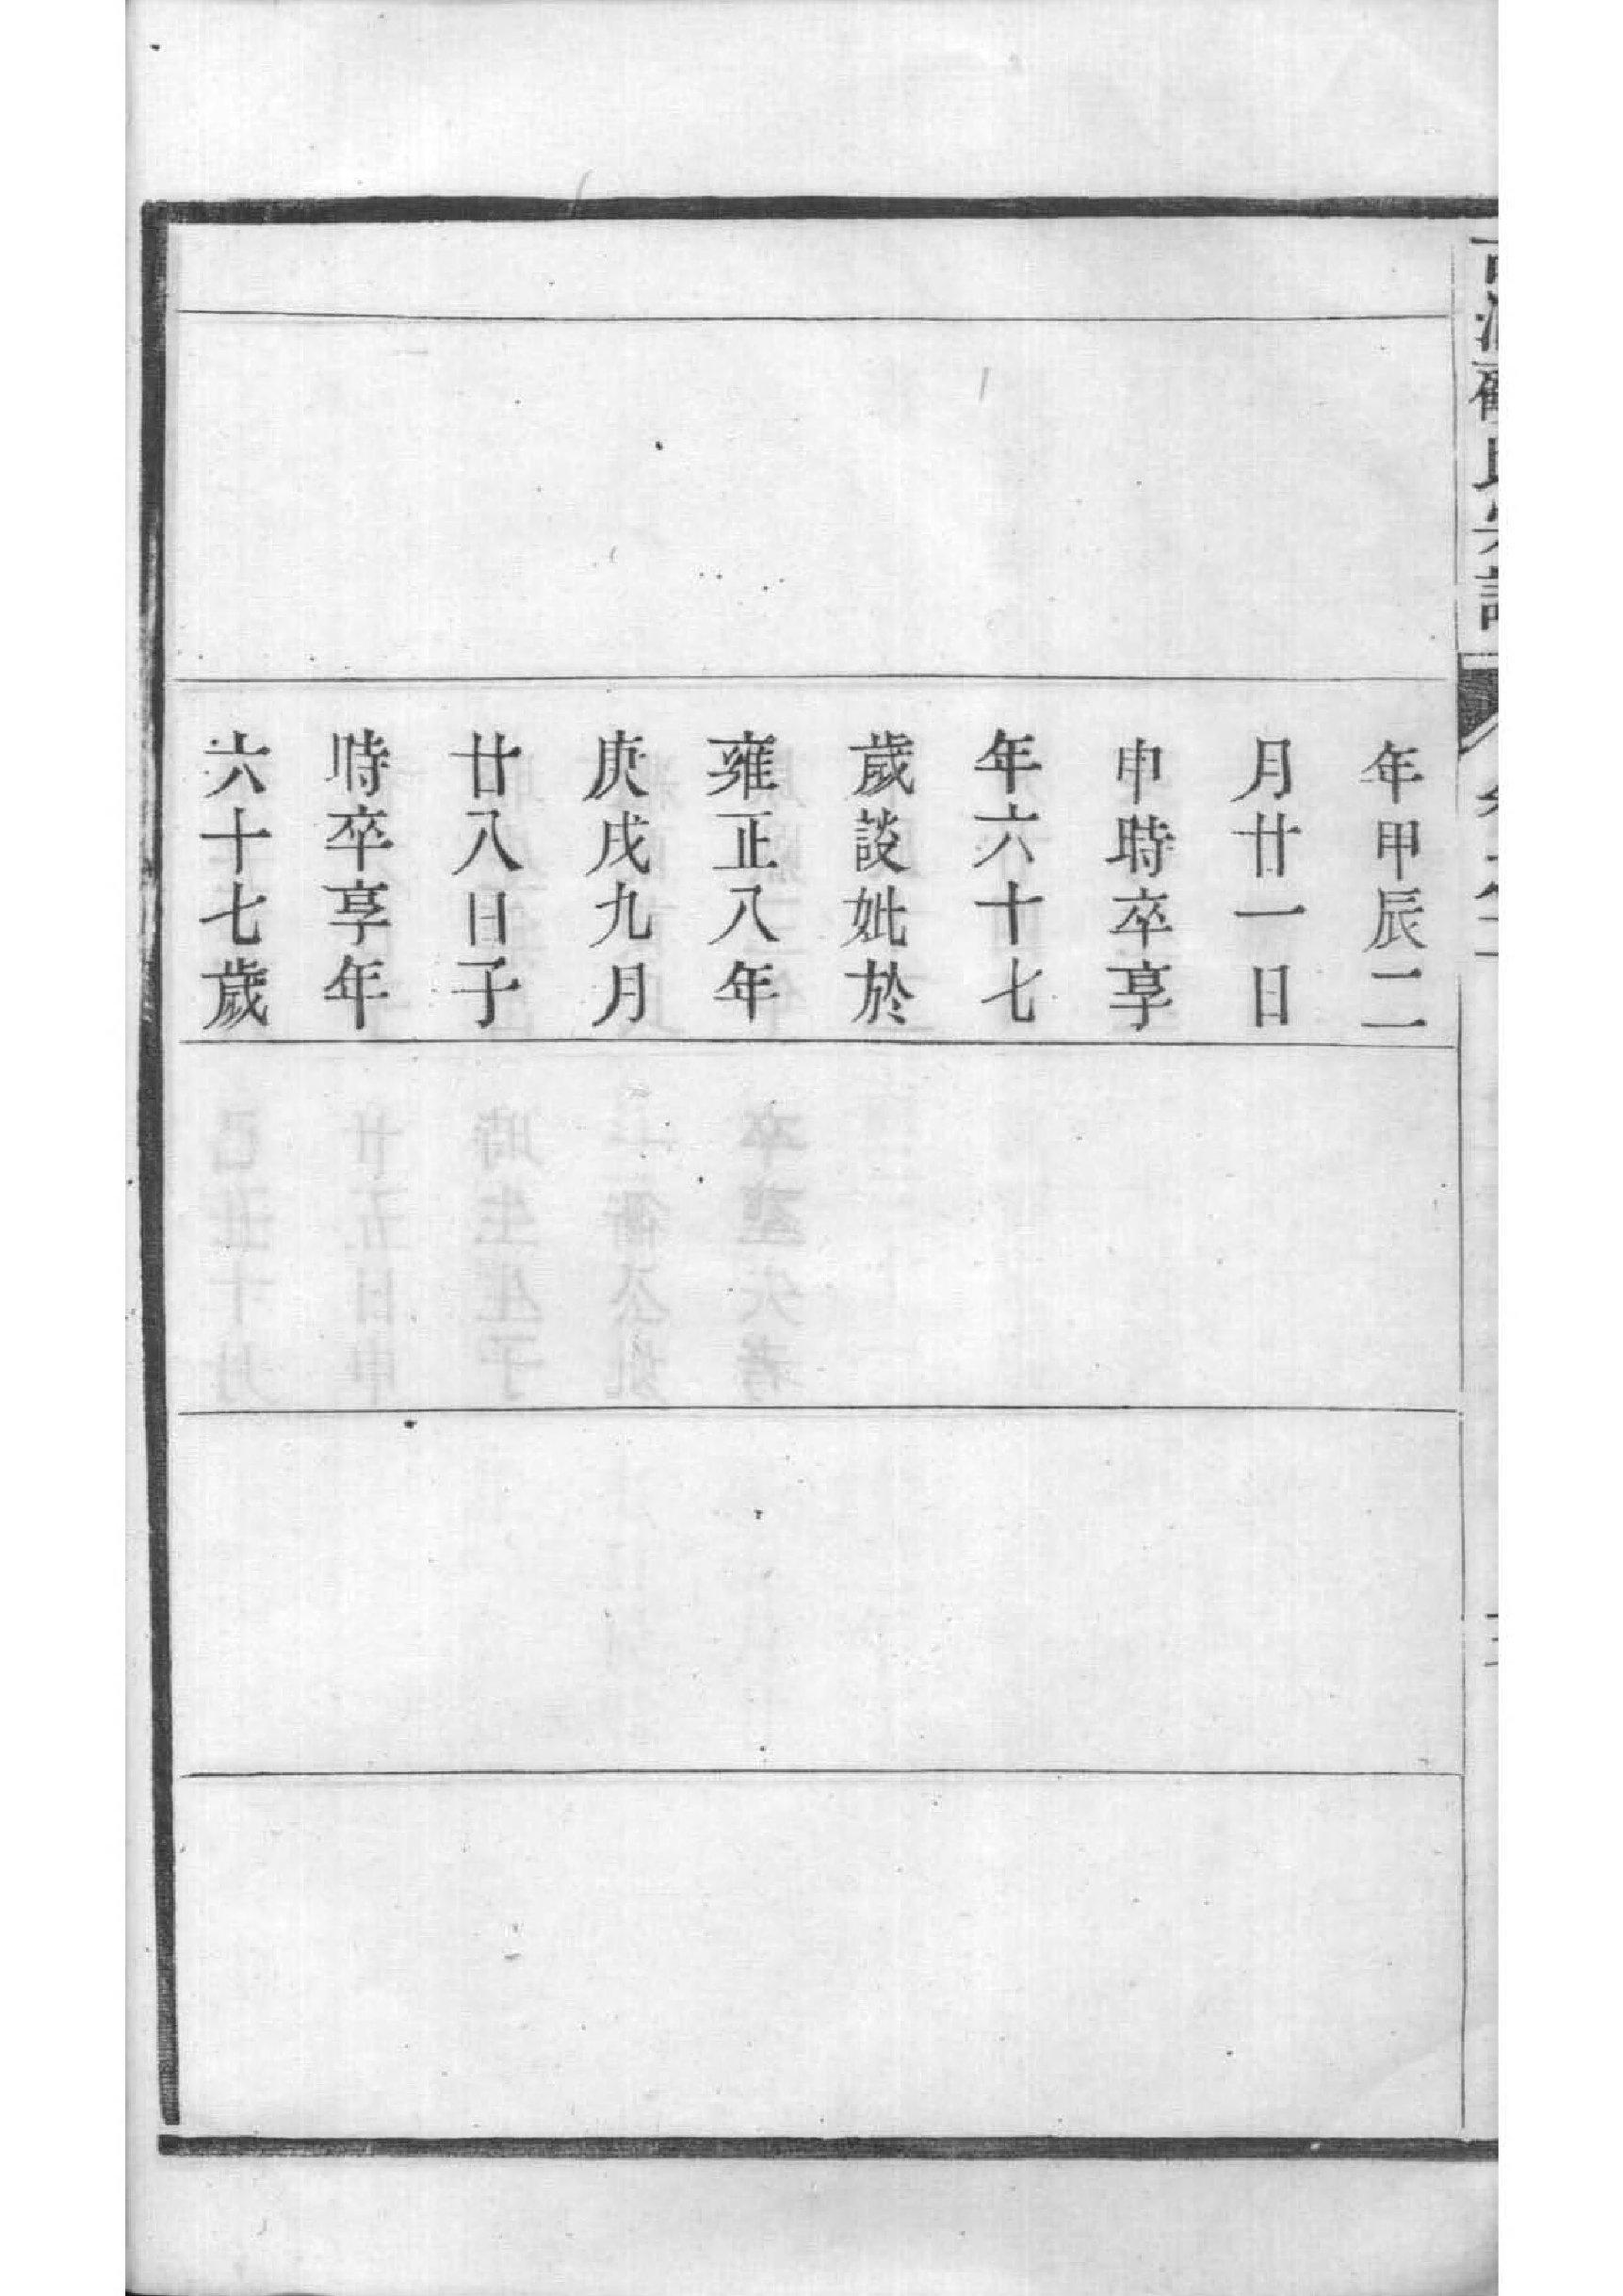 年甲辰二
月廿一日
申時卒享
年六十七
歲談妣於
雍正八年
庚戌九月
廿八日子
時卒享年
六十七歲